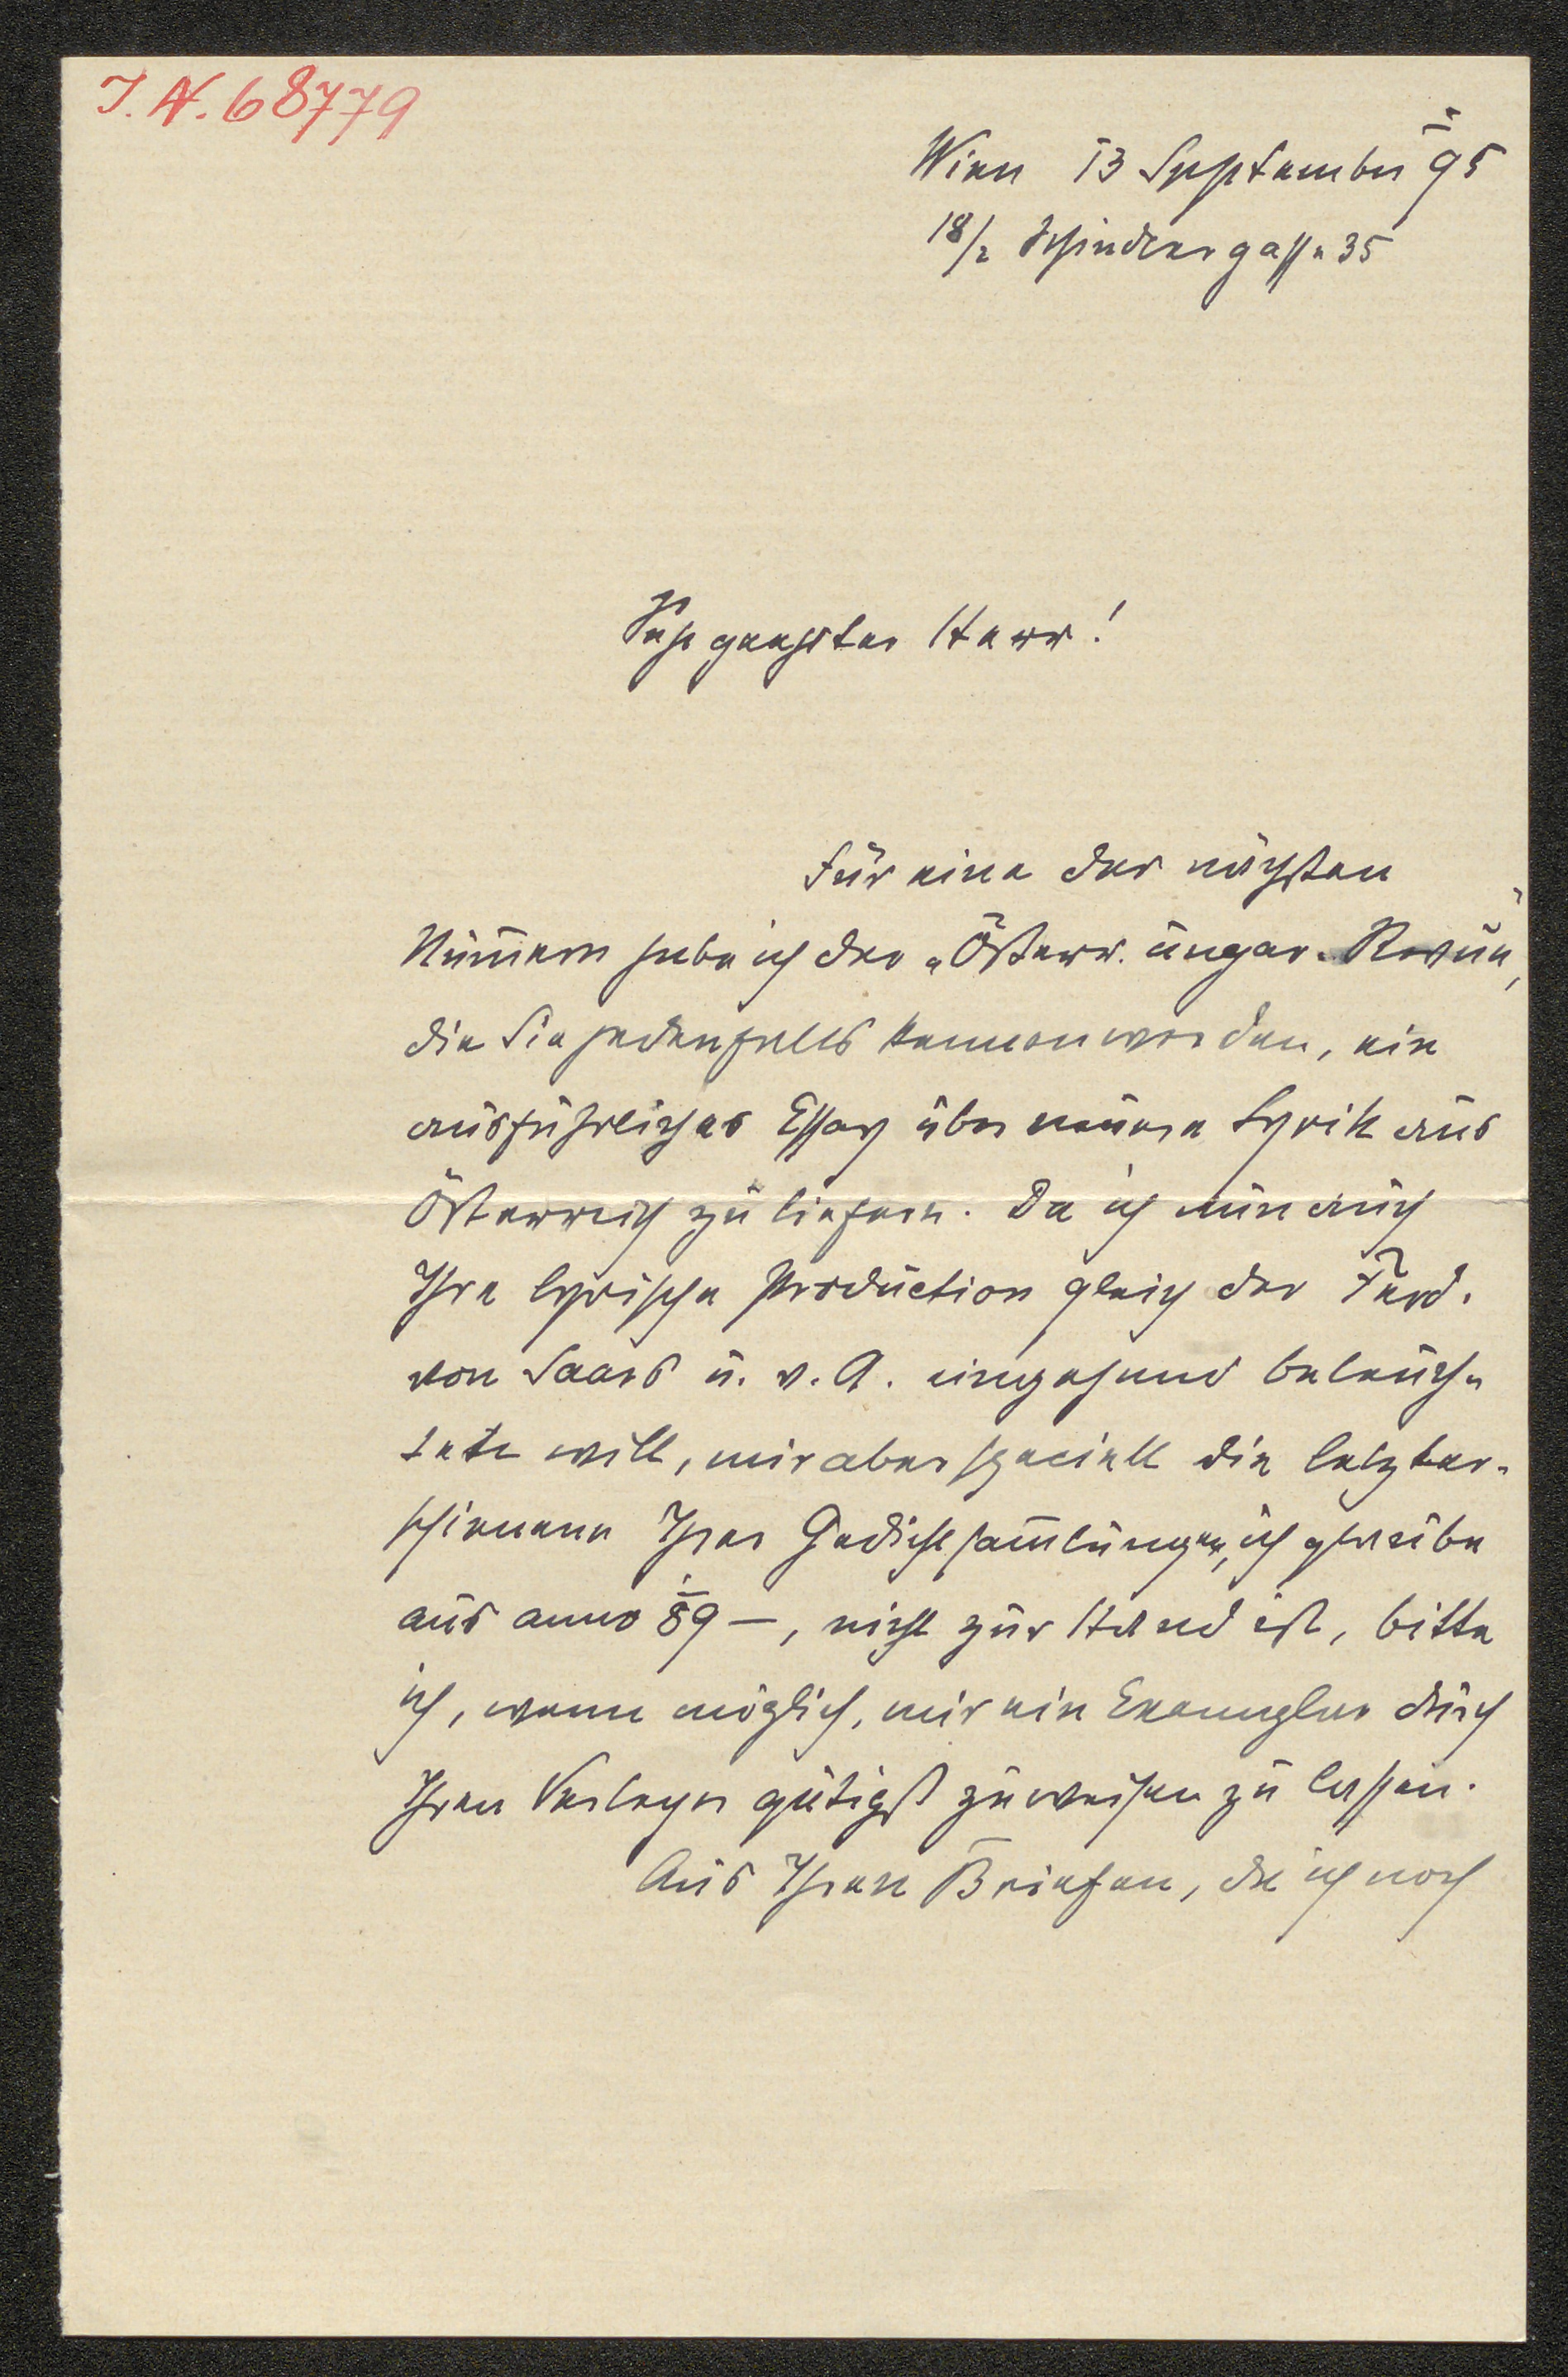 J. N. 68779
Wien 13 September 95
18/2 Schindlergasse 35
Sehr geehrter Herr!
Für eine der nächsten
Num̄ern habe ich der „Österr. ungar. Revue",
die Sie jedenfalls kennen werden, ein
ausführliches Essay über neuere Lyrik aus
Österreich zu liefern. Da ich nun auch
Ihre lyrische Production gleich der Ferd.
von Saars u. v. A. eingehend beleuch-
ten will, mir aber speciell die letzter-
schienene Ihrer Gedichtsam̄lungen, ich glaube
aus anno 89 –, nicht zur Hand ist, bitte
ich, wenn möglich, mir ein Exemplar durch
Ihren Verleger gütigst zuweisen zu lassen.
Aus Ihren Briefen, die ich noch